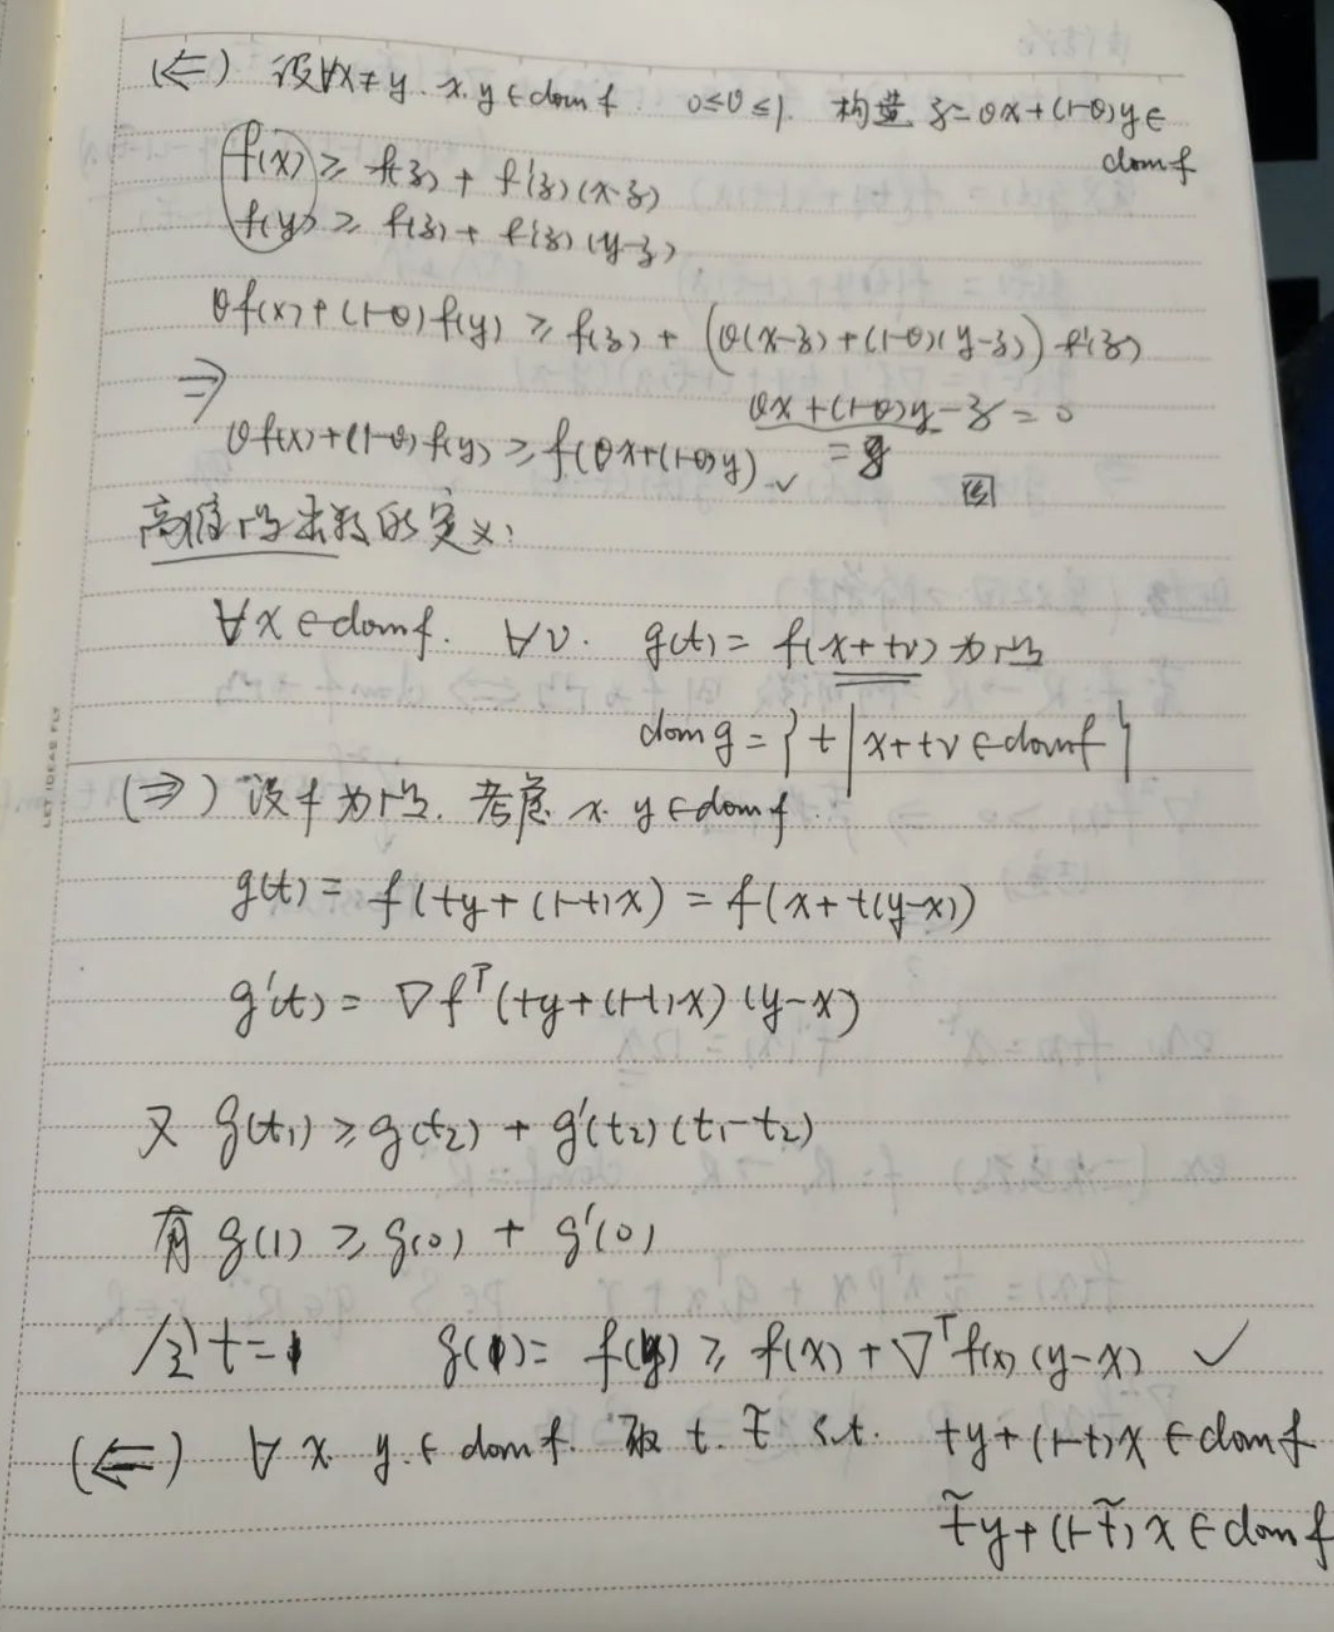 (⇐) 设∀x≠y. x.y∈dom f. 0≤θ≤1. 构造 z=θx+(1-θ)y∈
dom f
f(x) ≥ f(z) + f'(z)(x-z)
f(y) ≥ f(z) + f'(z)(y-z)
θf(x)+(1-θ)f(y) ≥ f(z) + (θ(x-z)+(1-θ)(y-z)) f'(z)
⇒ θx+(1-θ)y-z=0
θf(x)+(1-θ)f(y) ≥ f(θx+(1-θ)y) ✓ =z
高维凸函数的定义:
∀x∈dom f. ∀v. g(t)= f(x+tv) 为凸
dom g = {t|x+tv∈dom f}
LET IDEAS FLY
(⇒) 设f为凸. 考虑 x. y∈dom f.
g(t) = f(ty+(1-t)x) = f(x+t(y-x))
g'(t) = ∇f^T(ty+(1-t)x)(y-x)
又 g(t₁) ≥ g(t₂) + g'(t₂)(t₁-t₂)
有 g(1) ≥ g(0) + g'(0)
t=1 g(1)= f(y) ≥ f(x)+∇^T f(x)(y-x) ✓
(⇐) ∀ x. y.∈dom f. 取 t. t̃ s.t. ty+(1-t)x∈dom f
t̃y+(1-t̃)x∈dom f